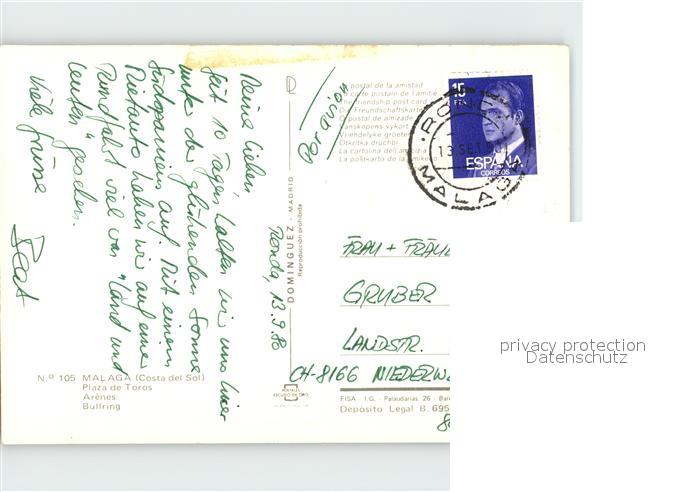 Ronda, 13.9.80
Meine Lieben,
Seit 10 Tagen halten wir uns hier
unter der glühenden Sonne
Südspaniens auf. Mit einem
Mietauto haben wir auf einer
Rundfahrt viel von "Land und
Leuten" gesehen.
Viele Grüsse
Beat
Nº 105 MALAGA (Costa del Sol)
Plaza de Toros
Arènes
Bullring
DOMINGUEZ - MADRID
Reproducción prohibida
POSTALES
ESCUDO DE ORO
Par avion
postal de la amistad
carte postale de l'amitié
The friendship post card
Die Freundschaftskarte
O postal de amizade
Vanskopens vykort
Vriendelyke groeten
Otkritka druchbi
La cartolina dell'amicizia
La poŝtkarto de la amikeco
15
PTA
ESPAÑA
CORREOS
RONDA
13 SET. 80
MALAGA
FRAU + FRÄUL
GRUBER
LANDSTR.
CH-8166 NIEDERW
FISA - I.G. - Palaudarias, 26 - Bar
Depósito Legal B. 695
privacy protection
Datenschutz